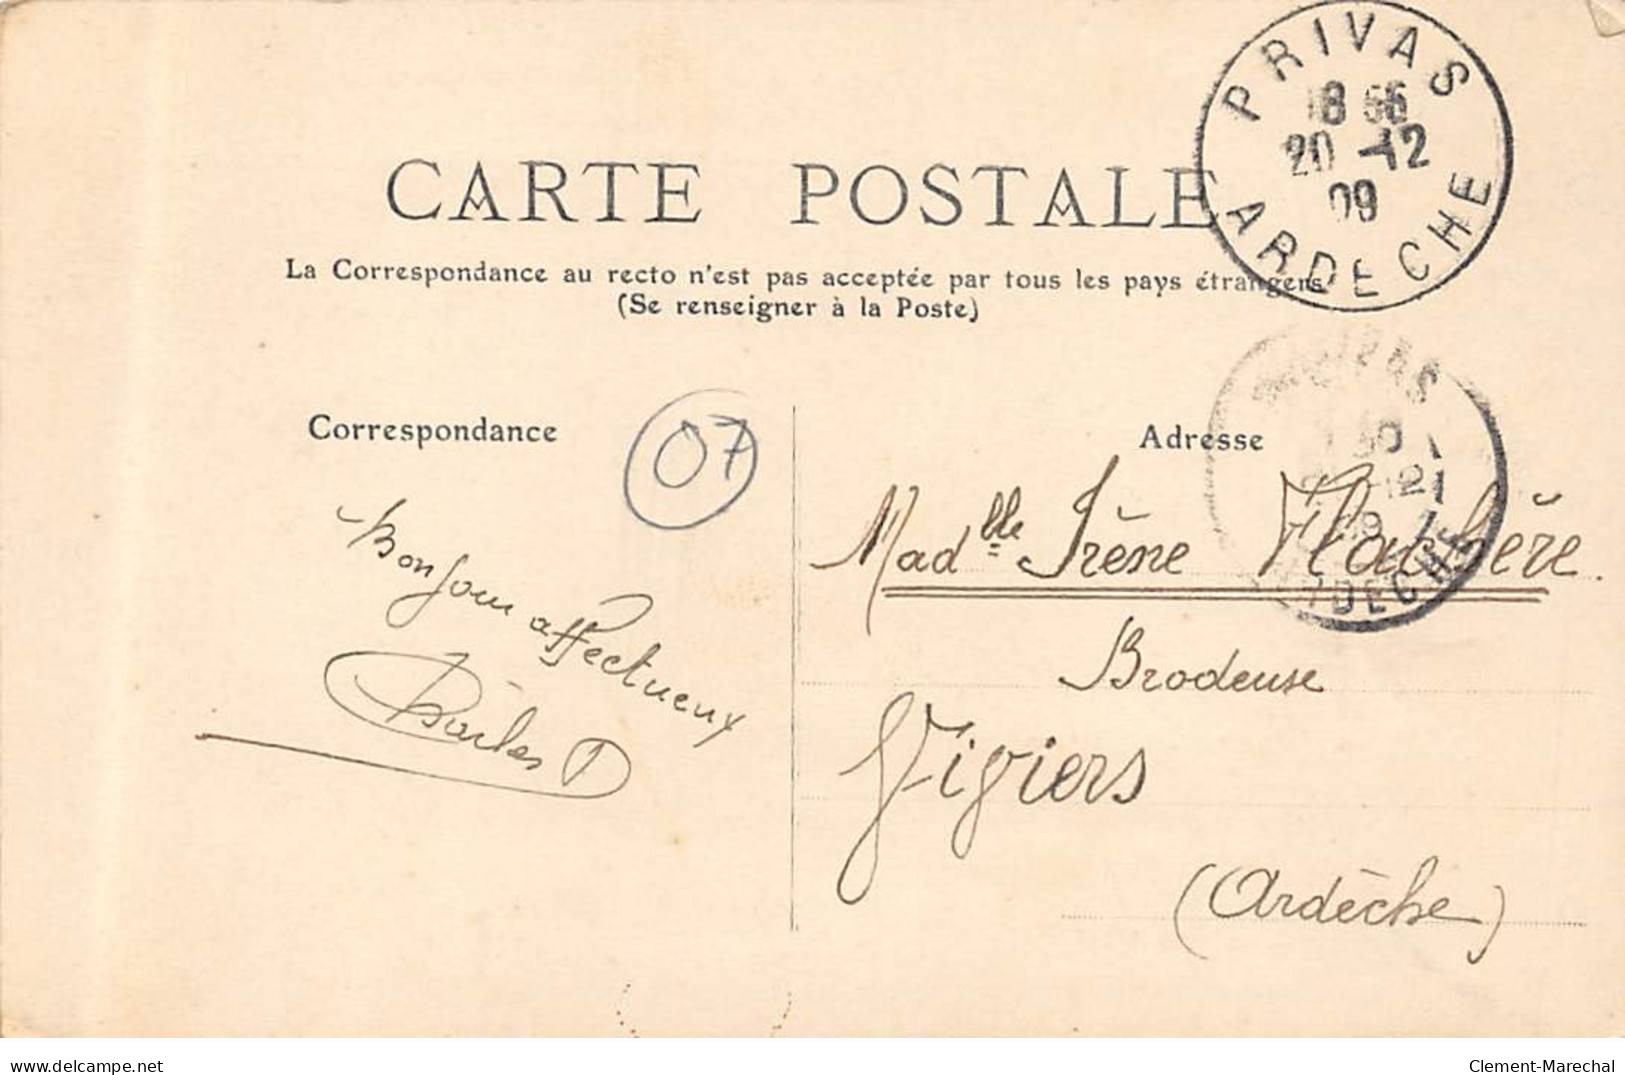 PRIVAS
18 56
20 -12
09
ARDECHE
CARTE POSTALE
La Correspondance au recto n'est pas acceptée par tous les pays étrangers
(Se renseigner à la Poste)
Correspondance
07
Bonjour affectueux
Charles
Adresse
Madelle Irène Flachère.
Brodeuse
Viviers
(Ardèche)
ARDECHE
www.delcampe.net
Clement-Marechal